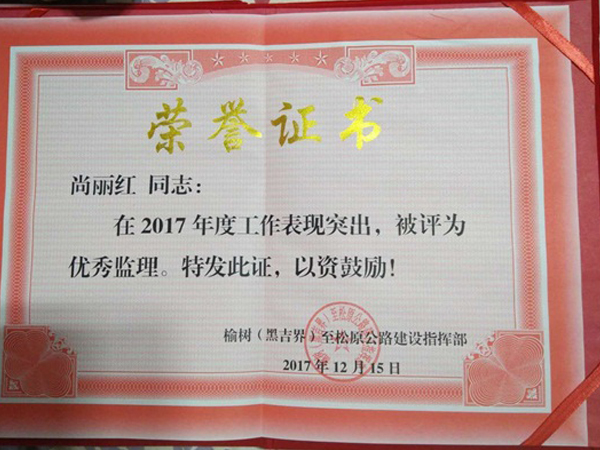 荣誉证书
尚丽红 同志：
在2017年度工作表现突出，被评为
优秀监理。特发此证，以资鼓励！
榆树（黑吉界）至松原公路建设指挥部
2017年12月15日